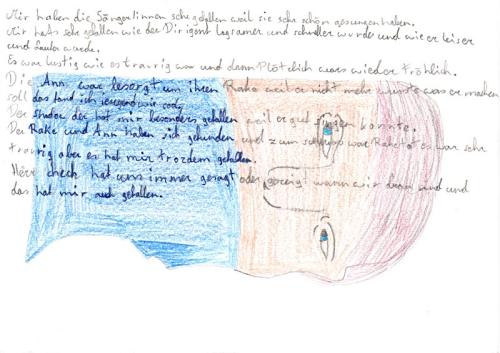 Mir haben die Sängerlinnen sehr gefallen weil sie sehr schön gesungen haben.
Mir hats sehr gefallen wie der Dirigent langsamer und schneller wurde und wie er leiser
und lauter wurde.
Es war lustig wie es traurig war und dann Plötzlich wars wieder fröhlich.
Die Ann, war besorgt um ihren Rake weil er nicht mehr wuste was er machen
soll das fand ich irgendwie cool.
Der Shadow der hat mir besonderes gefallen weil er gut singen konnte.
Der Rake und Ann haben sich gefunden und zum schluss war Rake tot es war sehr
traurig aber es hat mir trozdem gefallen.
Herr check hat uns immer gesagt oder gezeigt wann wir dran sind und
das hat mir auch gefallen.